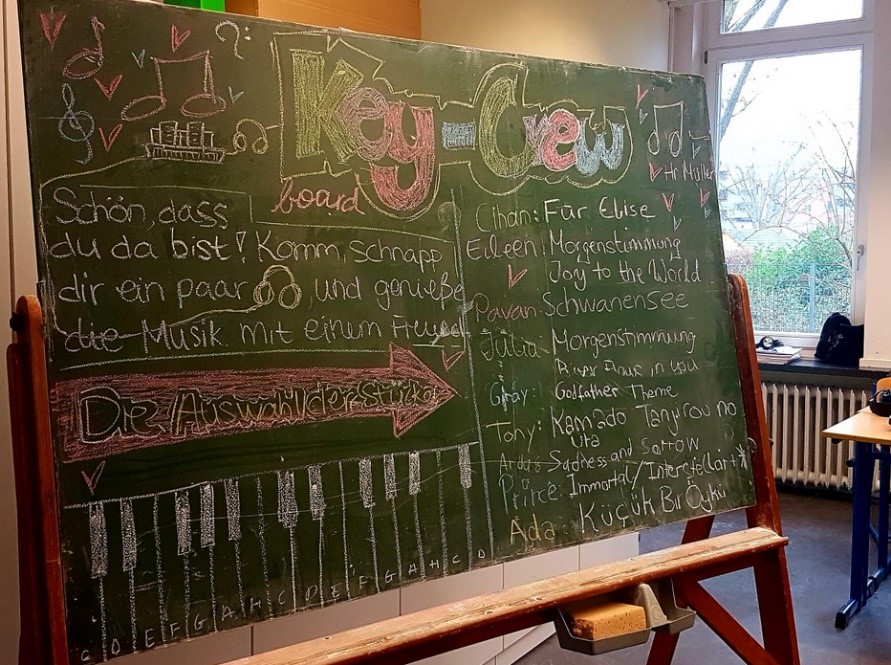 Key-Crew
board
Hr Müller
Schön, dass
du da bist! Komm, schnapp
dir ein paar , und genieße
die Musik mit einem Freund
Die Auswahl der Stücke:
Cihan: Für Elise
Eileen: Morgenstimmung
Joy to the World
Pavan: Schwanensee
Julia: Morgenstimmung
River Flows in you
Gray: Godfather Theme
Tony: Kamado Tanjirou no
Uta
Arda: Sadness and Sorrow
Prince: Immortal/Interstellar+*
Ada: Küçük Bir Öykü
C D E F G A H C D E F G A H C D